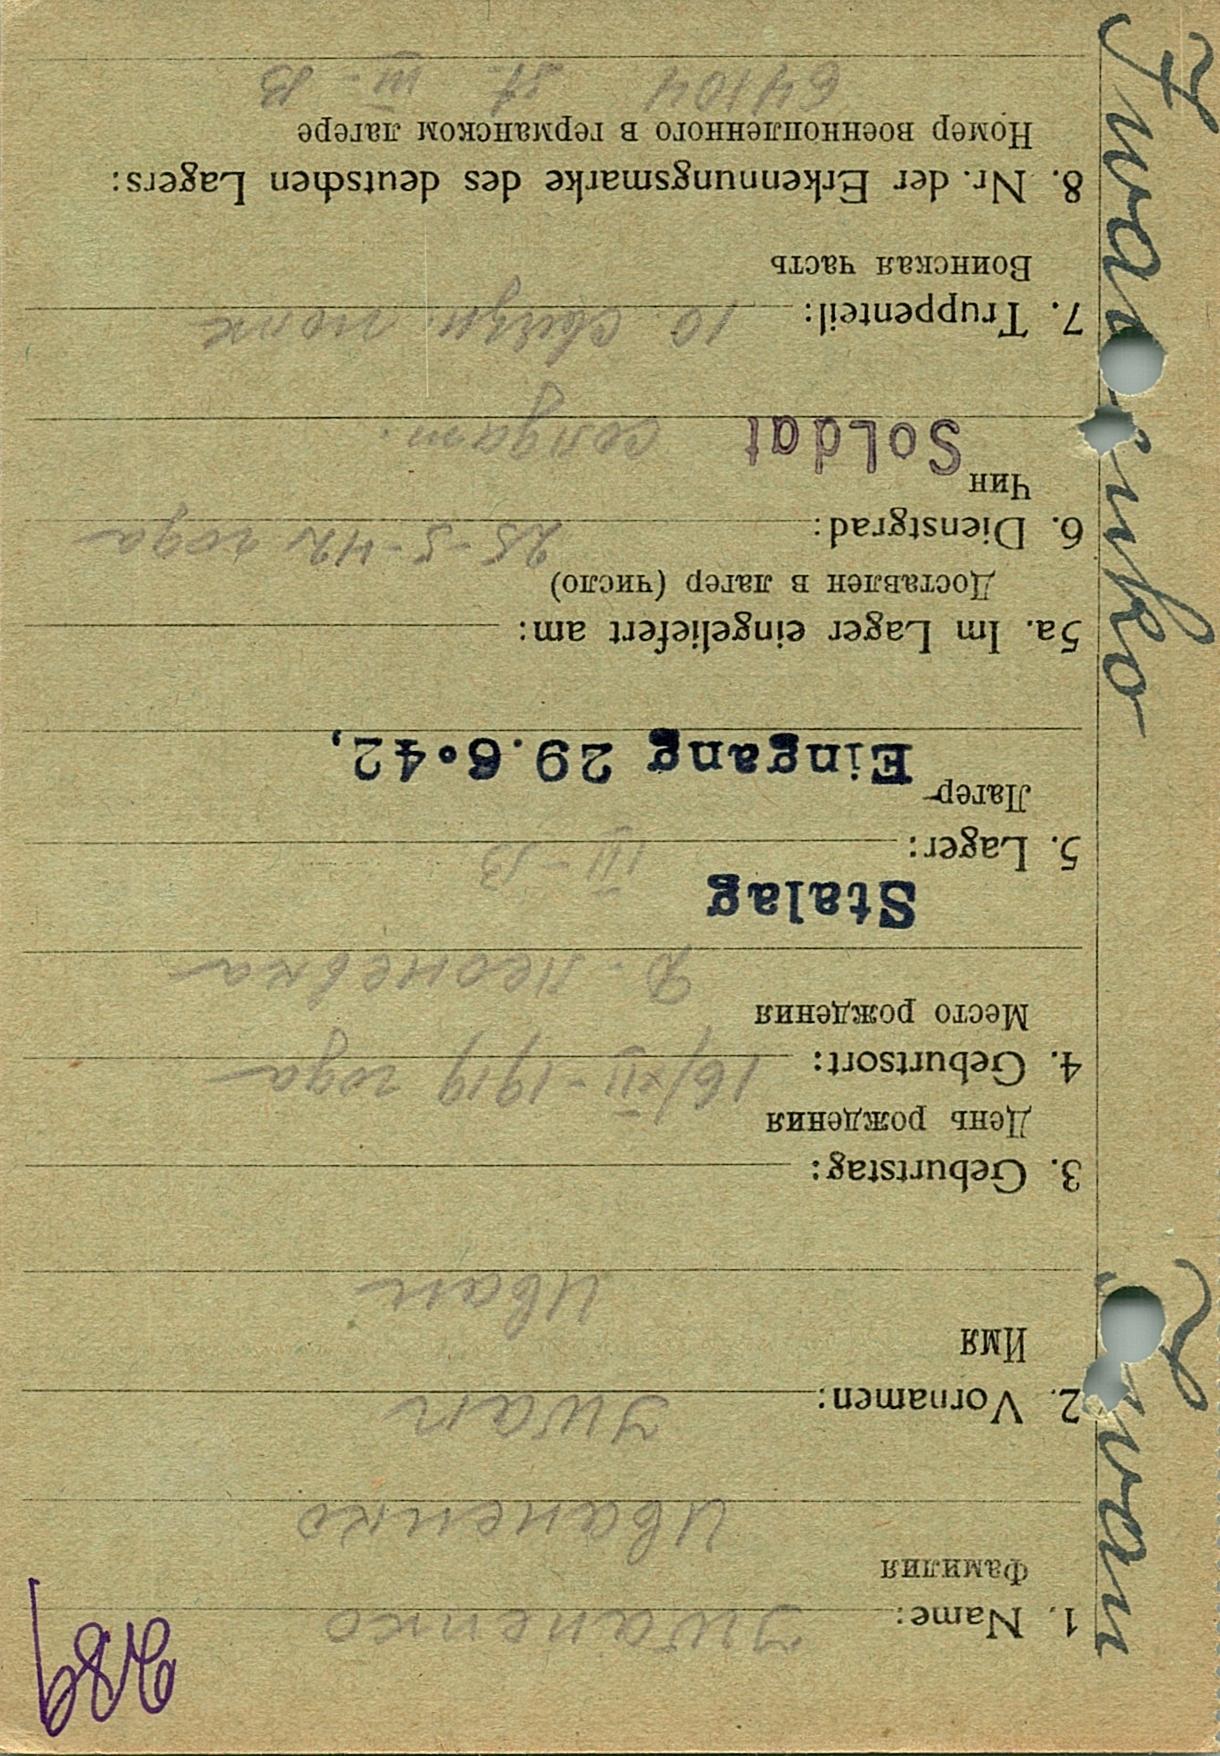 389
1. Name: Iwanenko
Фамилия
Иваненко
2. Vornamen: Iwan
Имя
Иван
3. Geburtstag:
День рождения
16/XII-1919 года
4. Geburtsort:
Место рождения
Д. Леоневка
Stalag
5. Lager: III-B
Лагер
Eingang 29.6.42,
5a. Im Lager eingeliefert am:
Доставлен в лагер (число)
25-5-42 года
6. Dienstgrad:
Чин
Soldat солдат.
7. Truppenteil: 10 полк
Воинская часть
8. Nr. der Erkennungsmarke des deutschen Lagers:
Номер военнопленного в германском лагере
64104 St. III-B
Iwanenko Iwan